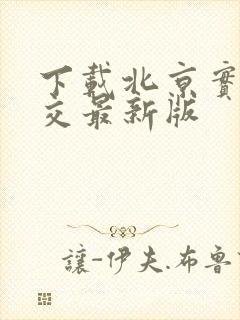 下载北京實
交最新版
讓-伊夫.布魯